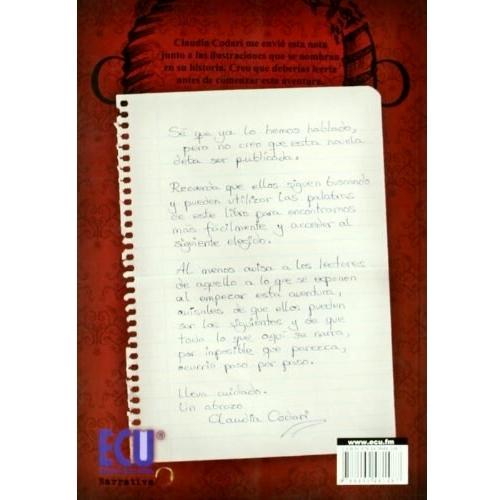 Claudia Codari me envió esta nota
junto a las ilustraciones que se nombran
en su historia. Creo que deberías leerla
antes de comenzar esta aventura.
Sé que ya lo hemos hablado,
pero no creo que esta novela
deba ser publicada.
Recuerda que ellos siguen buscando
y pueden utilizar las palabras
de este libro para encontrarnos
más fácilmente y acceder al
siguiente elegido.
Al menos avisa a los lectores
de aquello a lo que se exponen
al empezar esta aventura,
avísales de que ellos pueden
ser los siguientes y de que
todo lo que aquí se narra,
por imposible que parezca,
ocurrió paso por paso.
Lleva cuidado.
Un abrazo
Claudia Codari
ECU®
Narrativa
www.ecu.fm